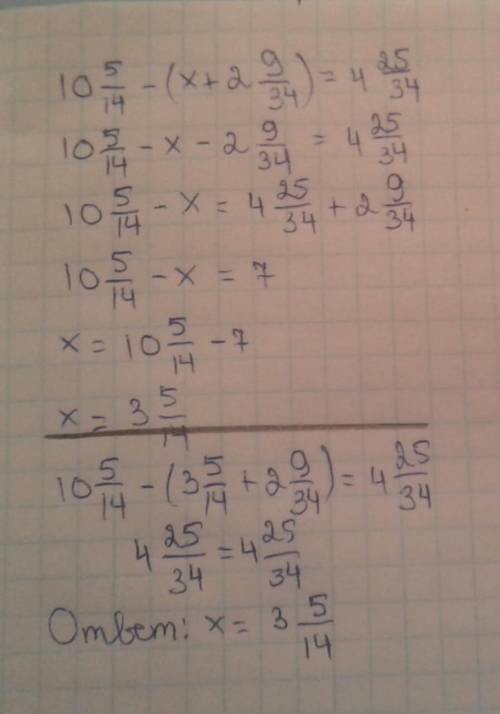 10 5/14 - (x + 2 9/34) = 4 25/34
10 5/14 - x - 2 9/34 = 4 25/34
10 5/14 - x = 4 25/34 + 2 9/34
10 5/14 - x = 7
x = 10 5/14 - 7
x = 3 5/14
10 5/14 - (3 5/14 + 2 9/34) = 4 25/34
4 25/34 = 4 25/34
Ответ: x = 3 5/14